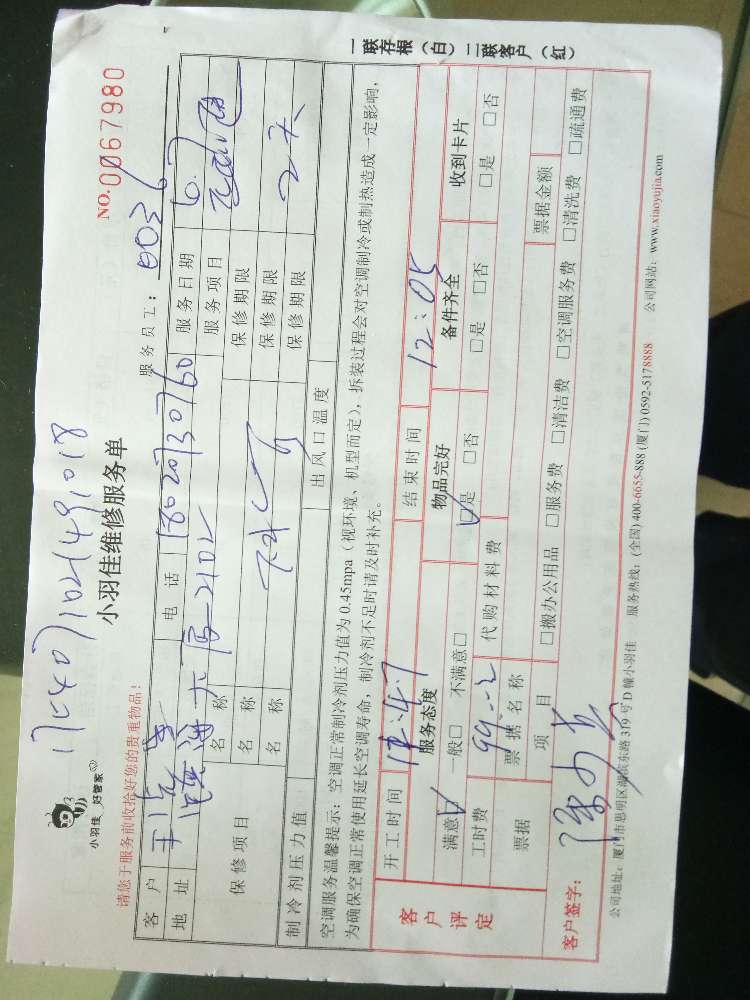 小羽佳 好管家
小羽佳维修服务单
NO.0067980
请您于服务前收拾好您的贵重物品！
服务员工：0036
客户 电话 18020730760 服务日期 6.7
地址 2102 服务项目
保修项目 名称 保修期限
名称 保修期限 2天
名称 保修期限
制冷剂压力值 出风口温度
空调服务温馨提示：空调正常制冷剂压力值为 0.45mpa（视环境、机型而定），拆装过程会对空调制冷或制热造成一定影响，
为确保空调正常使用延长空调寿命，制冷剂不足时请及时补充。
一联存根（白）二联客户（红）
客户评定 开工时间 结束时间 12:05
服务态度 物品完好 备件齐全 收到卡片
满意☑ 一般□ 不满意□ ☑是 □否 □是 □否 □是 □否
工时费 代购材料费
票据 票据名称 票据金额
项目 □搬办公用品 □服务费 □清洁费 □空调服务费 □清洗费 □疏通费
客户签字：
公司地址：厦门市思明区湖滨东路 319 号 D 幢小羽佳 服务热线：(全国) 400-6655-888 (厦门) 0592-5178888 公司网站：www.xiaoyujia.com